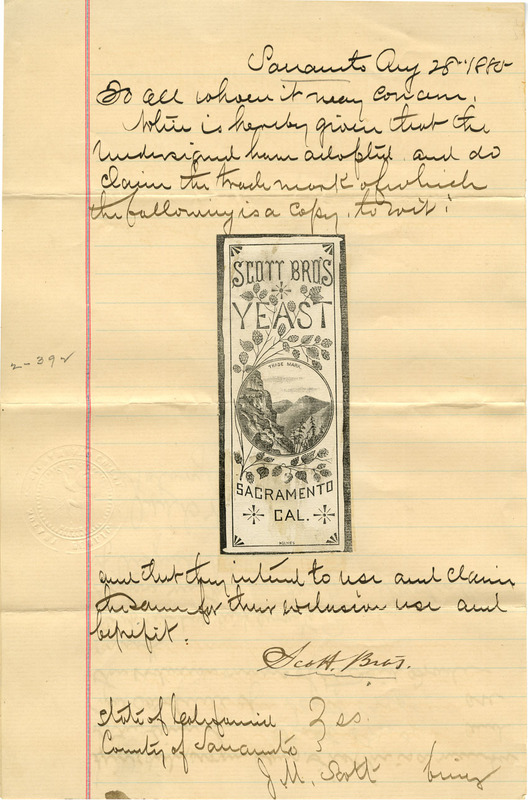 Sacramento Aug 28th 1885
To all whom it may concern,
Notice is hereby given that the
undersigned have adopted and do
claim the trade mark of which
the following is a copy, to wit:
SCOTT BRO'S
YEAST
TRADE MARK
SACRAMENTO
CAL.
2-392
and that they intend to use and claim
the same for their exclusive use and
benefit.
Scott Bros.
State of California } ss.
County of Sacramento
J M. Scott being